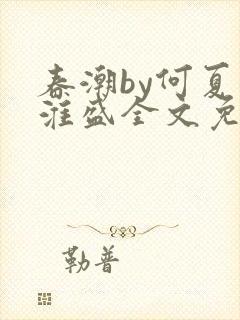 春潮by何夏
淮盛全文免
勒普